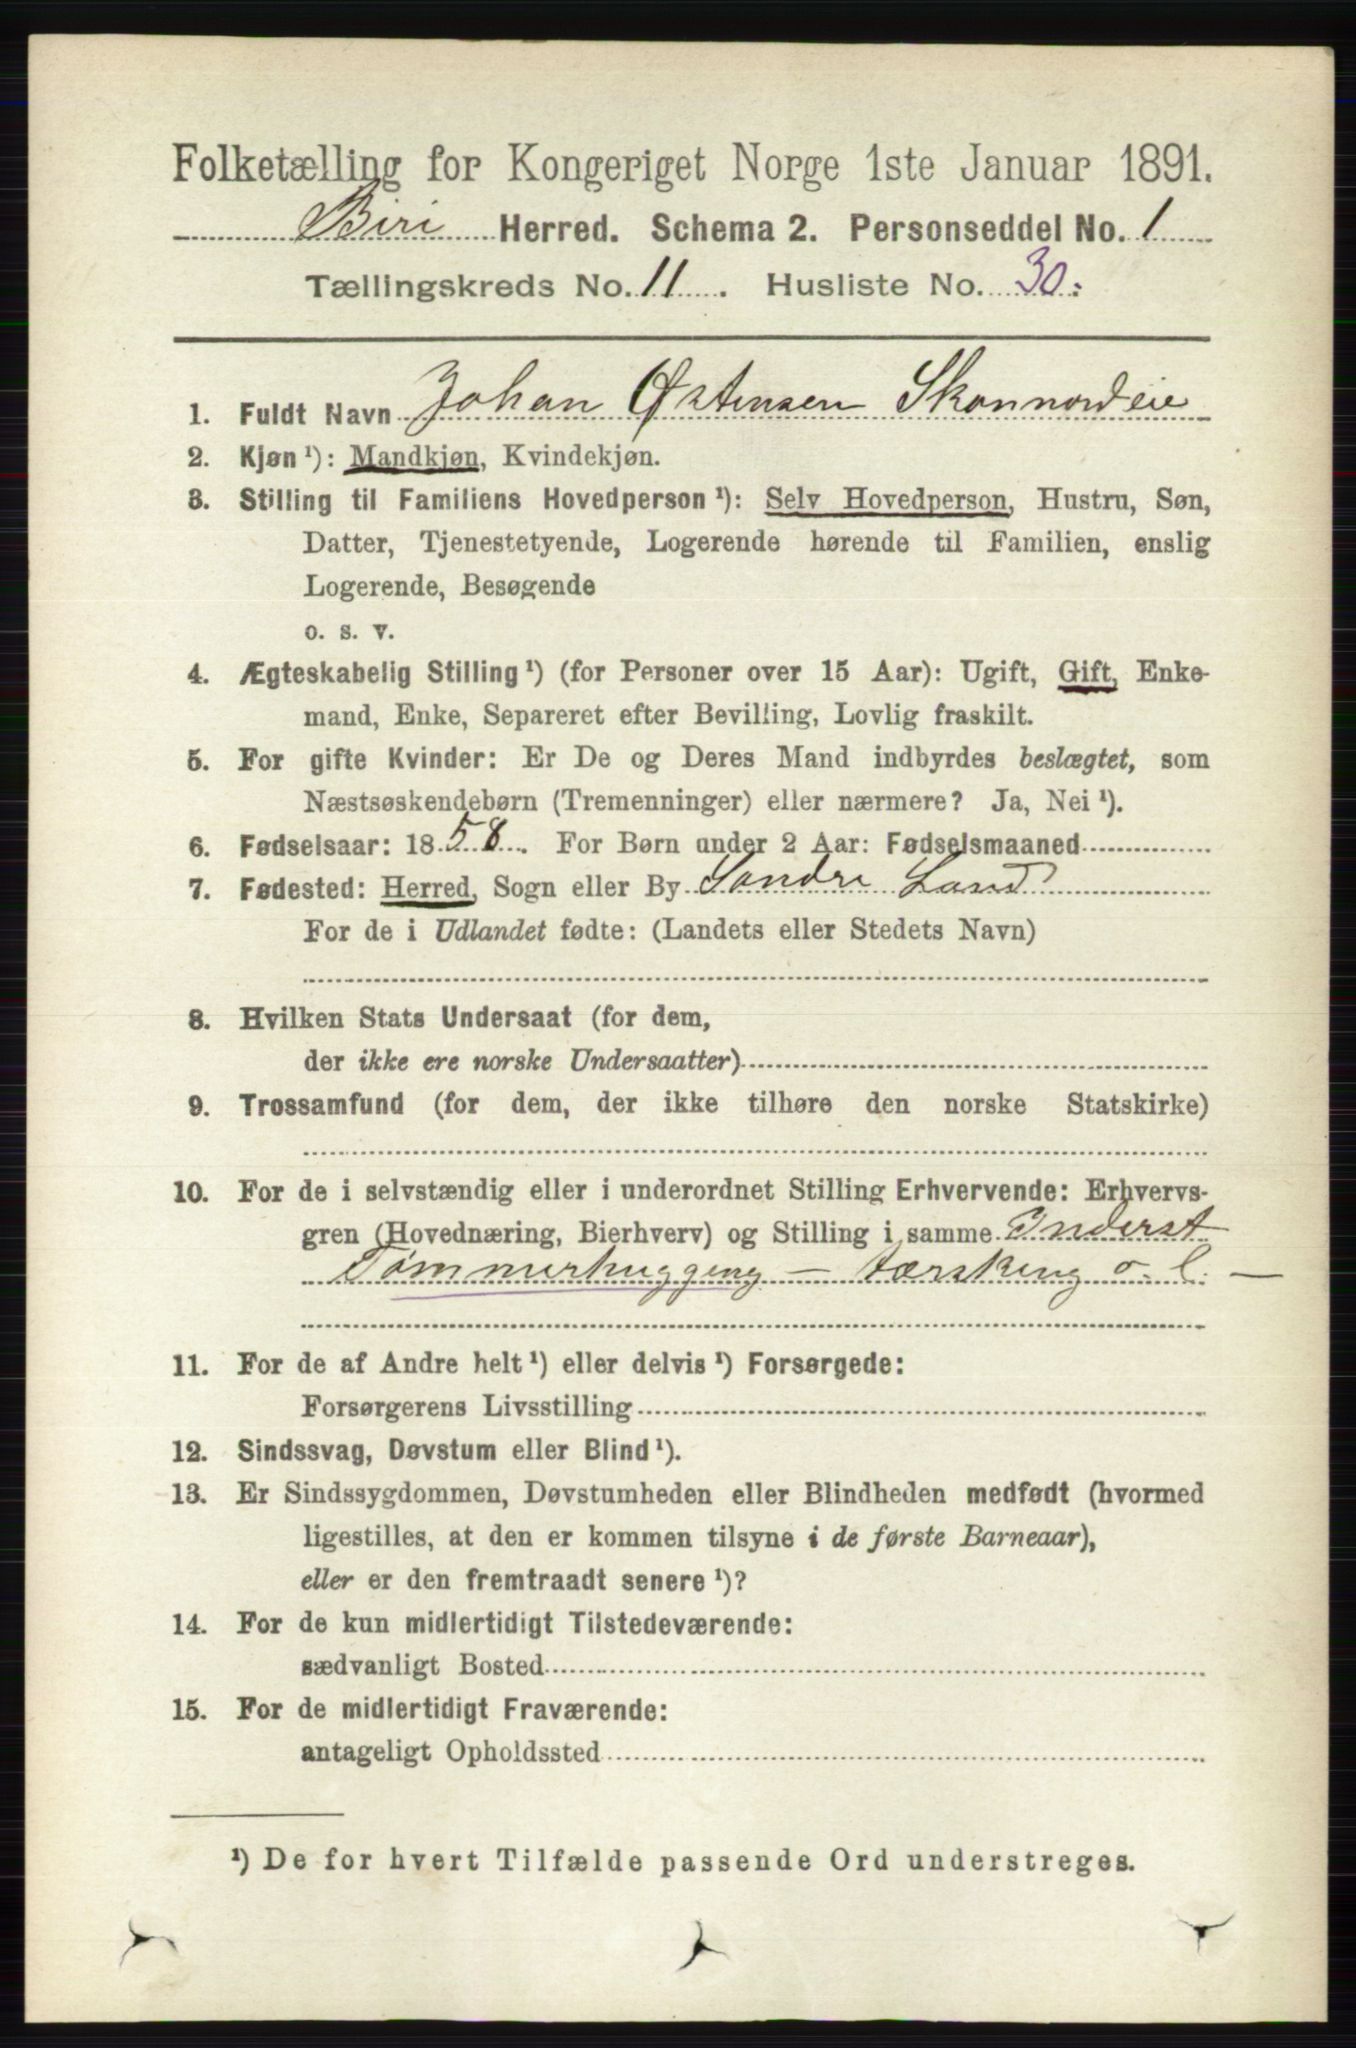 Folketælling for Kongeriget Norge 1ste Januar 1891.
Biri Herred. Schema 2. Personseddel No. 1
Tællingskreds No. 11. Husliste No. 30.
1. Fuldt Navn Johan Østensen Skonnordeie
2. Kjøn ¹): Mandkjøn, Kvindekjøn.
3. Stilling til Familiens Hovedperson ¹): Selv Hovedperson, Hustru, Søn,
Datter, Tjenestetyende, Logerende hørende til Familien, enslig
Logerende, Besøgende
o. s. v.
4. Ægteskabelig Stilling ¹) (for Personer over 15 Aar): Ugift, Gift, Enke-
mand, Enke, Separeret efter Bevilling, Lovlig fraskilt.
5. For gifte Kvinder: Er De og Deres Mand indbyrdes beslægtet, som
Næstsøskendebørn (Tremenninger) eller nærmere? Ja, Nei ¹).
6. Fødselsaar: 1858. For Børn under 2 Aar: Fødselsmaaned
7. Fødested: Herred, Sogn eller By Søndre Land
For de i Udlandet fødte: (Landets eller Stedets Navn)
8. Hvilken Stats Undersaat (for dem,
der ikke ere norske Undersaatter)
9. Trossamfund (for dem, der ikke tilhøre den norske Statskirke)
10. For de i selvstændig eller i underordnet Stilling Erhvervende: Erhvervs-
gren (Hovednæring, Bierhverv) og Stilling i samme Inderst
Tømmerhugging — tærsking o. l. —
11. For de af Andre helt ¹) eller delvis ¹) Forsørgede:
Forsørgerens Livsstilling
12. Sindssvag, Døvstum eller Blind ¹).
13. Er Sindssygdommen, Døvstumheden eller Blindheden medfødt (hvormed
ligestilles, at den er kommen tilsyne i de første Barneaar),
eller er den fremtraadt senere ¹)?
14. For de kun midlertidigt Tilstedeværende:
sædvanligt Bosted
15. For de midlertidigt Fraværende:
antageligt Opholdssted
¹) De for hvert Tilfælde passende Ord understreges.